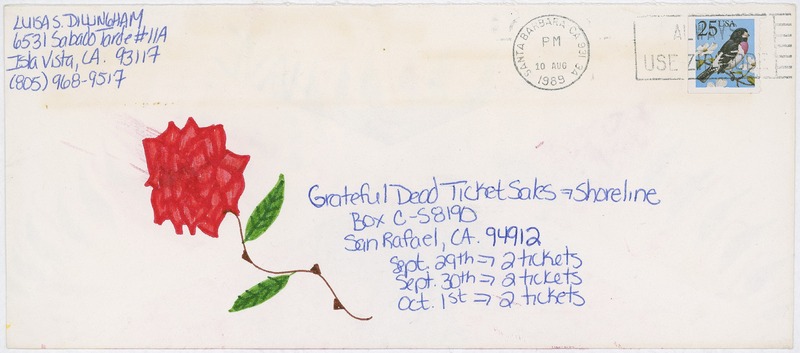 LUISA S. DILLINGHAM
6531 Sabado Tarde #11A
Isla Vista, CA. 93117
(805) 968-9517
SANTA BARBARA CA 931
PM
10 AUG
1989
USE ZIP CODE
25 USA
Grateful Dead Ticket Sales → Shoreline
Box C-S8190
San Rafael, CA. 94912
Sept. 29th → 2 tickets
Sept. 30th → 2 tickets
Oct. 1st → 2 tickets